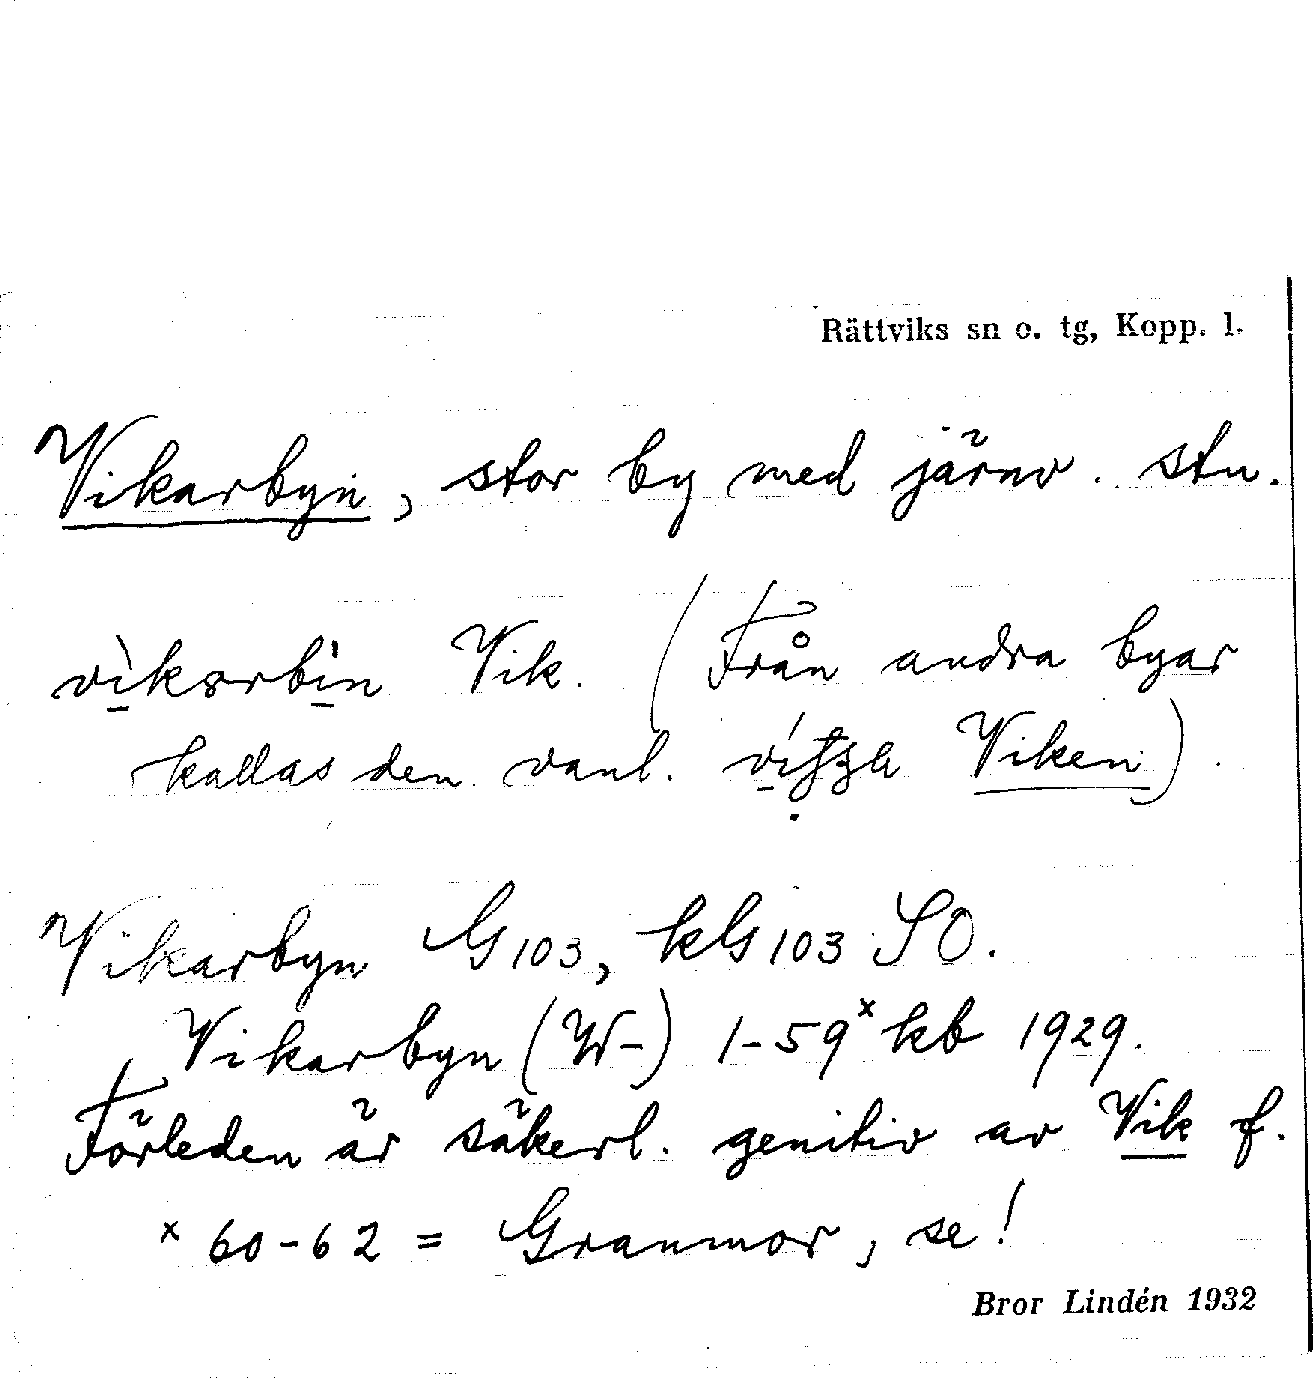 Rättviks sn o. tg, Kopp. l.
Vikarbyn, stor by med järnv. stn.
Vik. (Från andra byar
kallas den vanl. Viken).
Vikarbyn G103, kG103 SO.
Vikarbyn (W-) 1-59ˣ kb 1929.
Förleden är säkerl. genitiv av Vik f.
ˣ 60-62 = Granmor, se!
Bror Lindén 1932